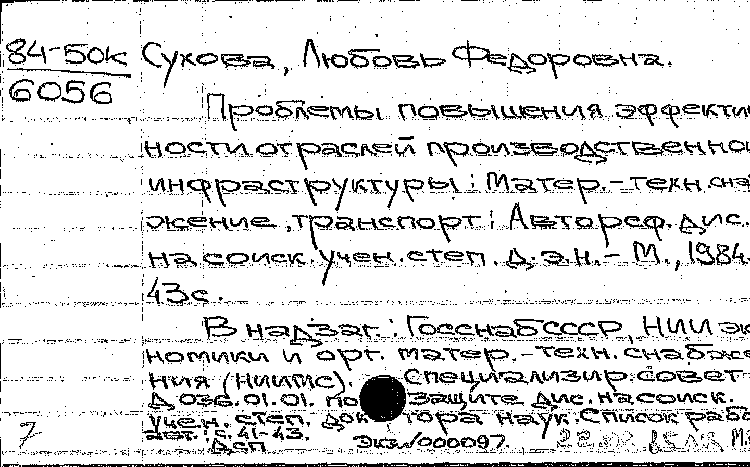 84-50к Сухова, Любовь Федоровна.
6056
Проблемы повышения эффектив
ности отраслей производственной
инфраструктуры: Матер.-техн.снаб
жение, транспорт: Автореф. дис.
на соиск. учен. степ. д.э.н. - М., 1984.
43с.
В надзаг.: Госснаб СССР, НИИ эко
номики и орг. матер.-техн. снабже
ния (НИИМС). Специализир. совет
Д 036.01.01. по защите дис. на соиск.
учен. степ. доктора наук. Список работ
авт.: с. 41-43.
ДСП Экз/000097.
7